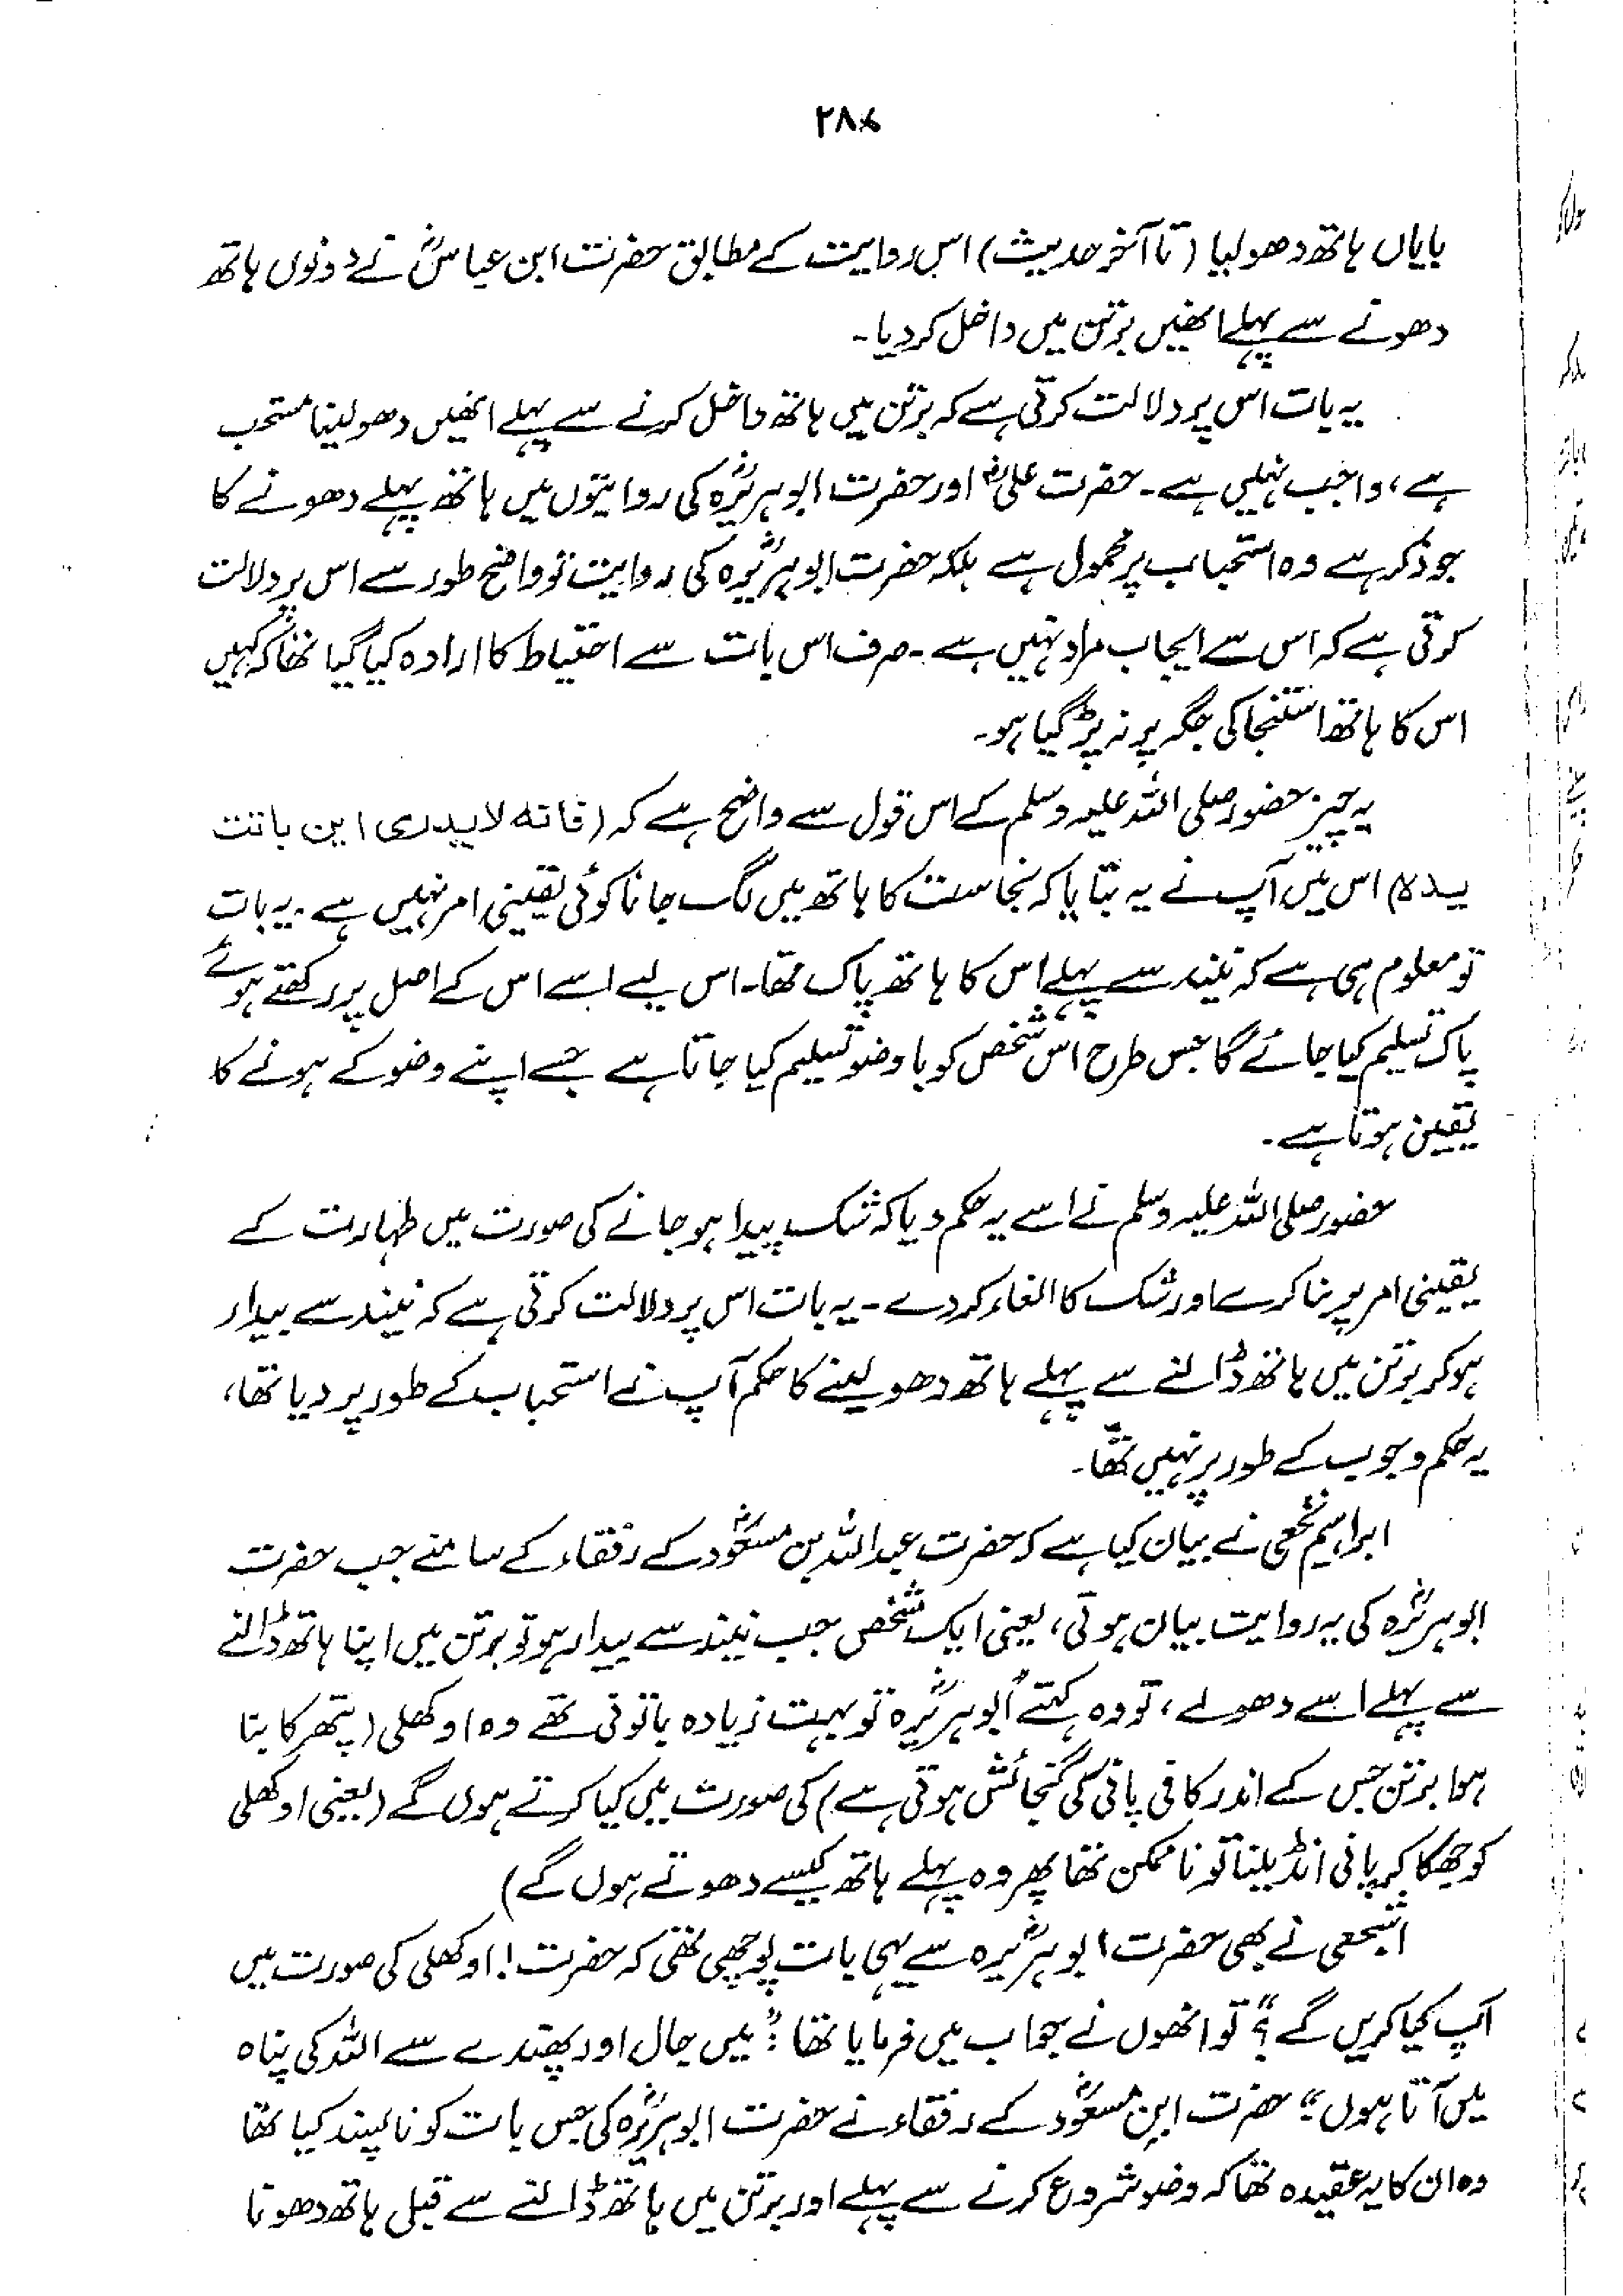 بایاں ہاتھ دھو لیا (تا آخر حدیث) اس روایت کے مطابق حضرت ابن عباسؓ نے دونوں ہاتھ
دھونے سے پہلے انھیں برتن میں داخل کر دیا۔
یہ بات اس پر دلالت کرتی ہے کہ برتن میں ہاتھ داخل کرنے سے پہلے انھیں دھو لینا مستحب
ہے، واجب نہیں ہے۔ حضرت علیؓ اور حضرت ابوہریرہؓ کی روایتوں میں ہاتھ پہلے دھونے کا
جو ذکر ہے وہ استحباب پر محمول ہے بلکہ حضرت ابوہریرہؓ کی روایت تو واضح طور سے اس پر دلالت
کرتی ہے کہ اس سے ایجاب مراد نہیں ہے۔ صرف اس بات سے احتیاط کا ارادہ کیا گیا تھا کہ کہیں
اس کا ہاتھ استنجا کی جگہ پر نہ پڑ گیا ہو۔
یہ چیز حضور صلی اللہ علیہ وسلم کے اس قول سے واضح ہے کہ (فانہ لا یدری این باتت
یدہ) اس میں آپ نے یہ بتایا کہ نجاست کا ہاتھ میں لگ جانا کوئی یقینی امر نہیں ہے۔ یہ بات
تو معلوم ہی ہے کہ نیند سے پہلے اس کا ہاتھ پاک تھا۔ اس لیے اسے اس کے اصل پر رکھتے ہوئے
پاک تسلیم کیا جائے گا جس طرح اس شخص کو با وضو تسلیم کیا جاتا ہے جسے اپنے وضو کے ہونے کا
یقین ہوتا ہے۔
حضور صلی اللہ علیہ وسلم نے اسے یہ حکم دیا کہ شک پیدا ہو جانے کی صورت میں طہارت کے
یقینی امر پر بنا کرے اور شک کا الغاء کر دے۔ یہ بات اس پر دلالت کرتی ہے کہ نیند سے بیدار
ہو کر برتن میں ہاتھ ڈالنے سے پہلے ہاتھ دھو لینے کا حکم آپ نے استحباب کے طور پر دیا تھا،
یہ حکم وجوب کے طور پر نہیں تھا۔
ابراہیم نخعی نے بیان کیا ہے کہ حضرت عبداللہ بن مسعودؓ کے رفقاء کے سامنے جب حضرت
ابوہریرہؓ کی یہ روایت بیان ہوتی، یعنی ایک شخص جب نیند سے بیدار ہو تو برتن میں اپنا ہاتھ ڈالنے
سے پہلے اسے دھولے، تو وہ کہتے "ابوہریرہؓ تو بہت زیادہ باتونی تھے وہ اوکھلی (پتھر کا بنا
ہوا برتن جس کے اندر کافی پانی کی گنجائش ہوتی ہے) کی صورت میں کیا کرتے ہوں گے (یعنی اوکھلی
کو جھکا کر پانی انڈیلنا تو ناممکن تھا پھر وہ پہلے ہاتھ کیسے دھوتے ہوں گے)
اشجعی نے بھی حضرت ابوہریرہؓ سے یہی بات پوچھی تھی کہ حضرت! اوکھلی کی صورت میں
آپ کیا کریں گے؟" تو انھوں نے جواب میں فرمایا تھا: "میں جال اور پھندے سے اللہ کی پناہ
میں آتا ہوں" حضرت ابن مسعودؓ کے رفقاء نے حضرت ابوہریرہؓ کی جس بات کو ناپسند کیا تھا
وہ ان کا یہ عقیدہ تھا کہ وضو شروع کرنے سے پہلے اور برتن میں ہاتھ ڈالنے سے قبل ہاتھ دھونا